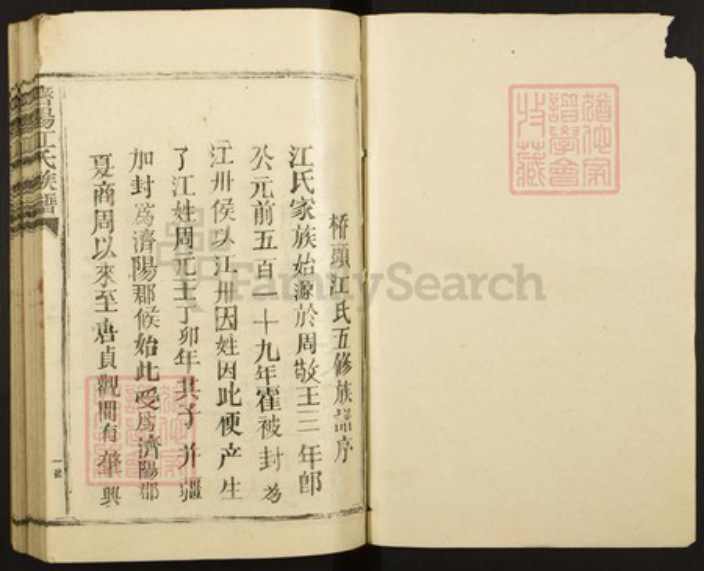 桥頭江氏五修族譜序
江氏家族始源於周敬王三年即
公元前五百一十九年霍被封为
江卅侯以江卅因姓因此便产生
了江姓周元王丁卯年其子并疆
加封為濟陽郡候始此受為濟陽郡
夏商周以來至唐貞觀間有肇興
濟陽江氏族譜
FamilySearch